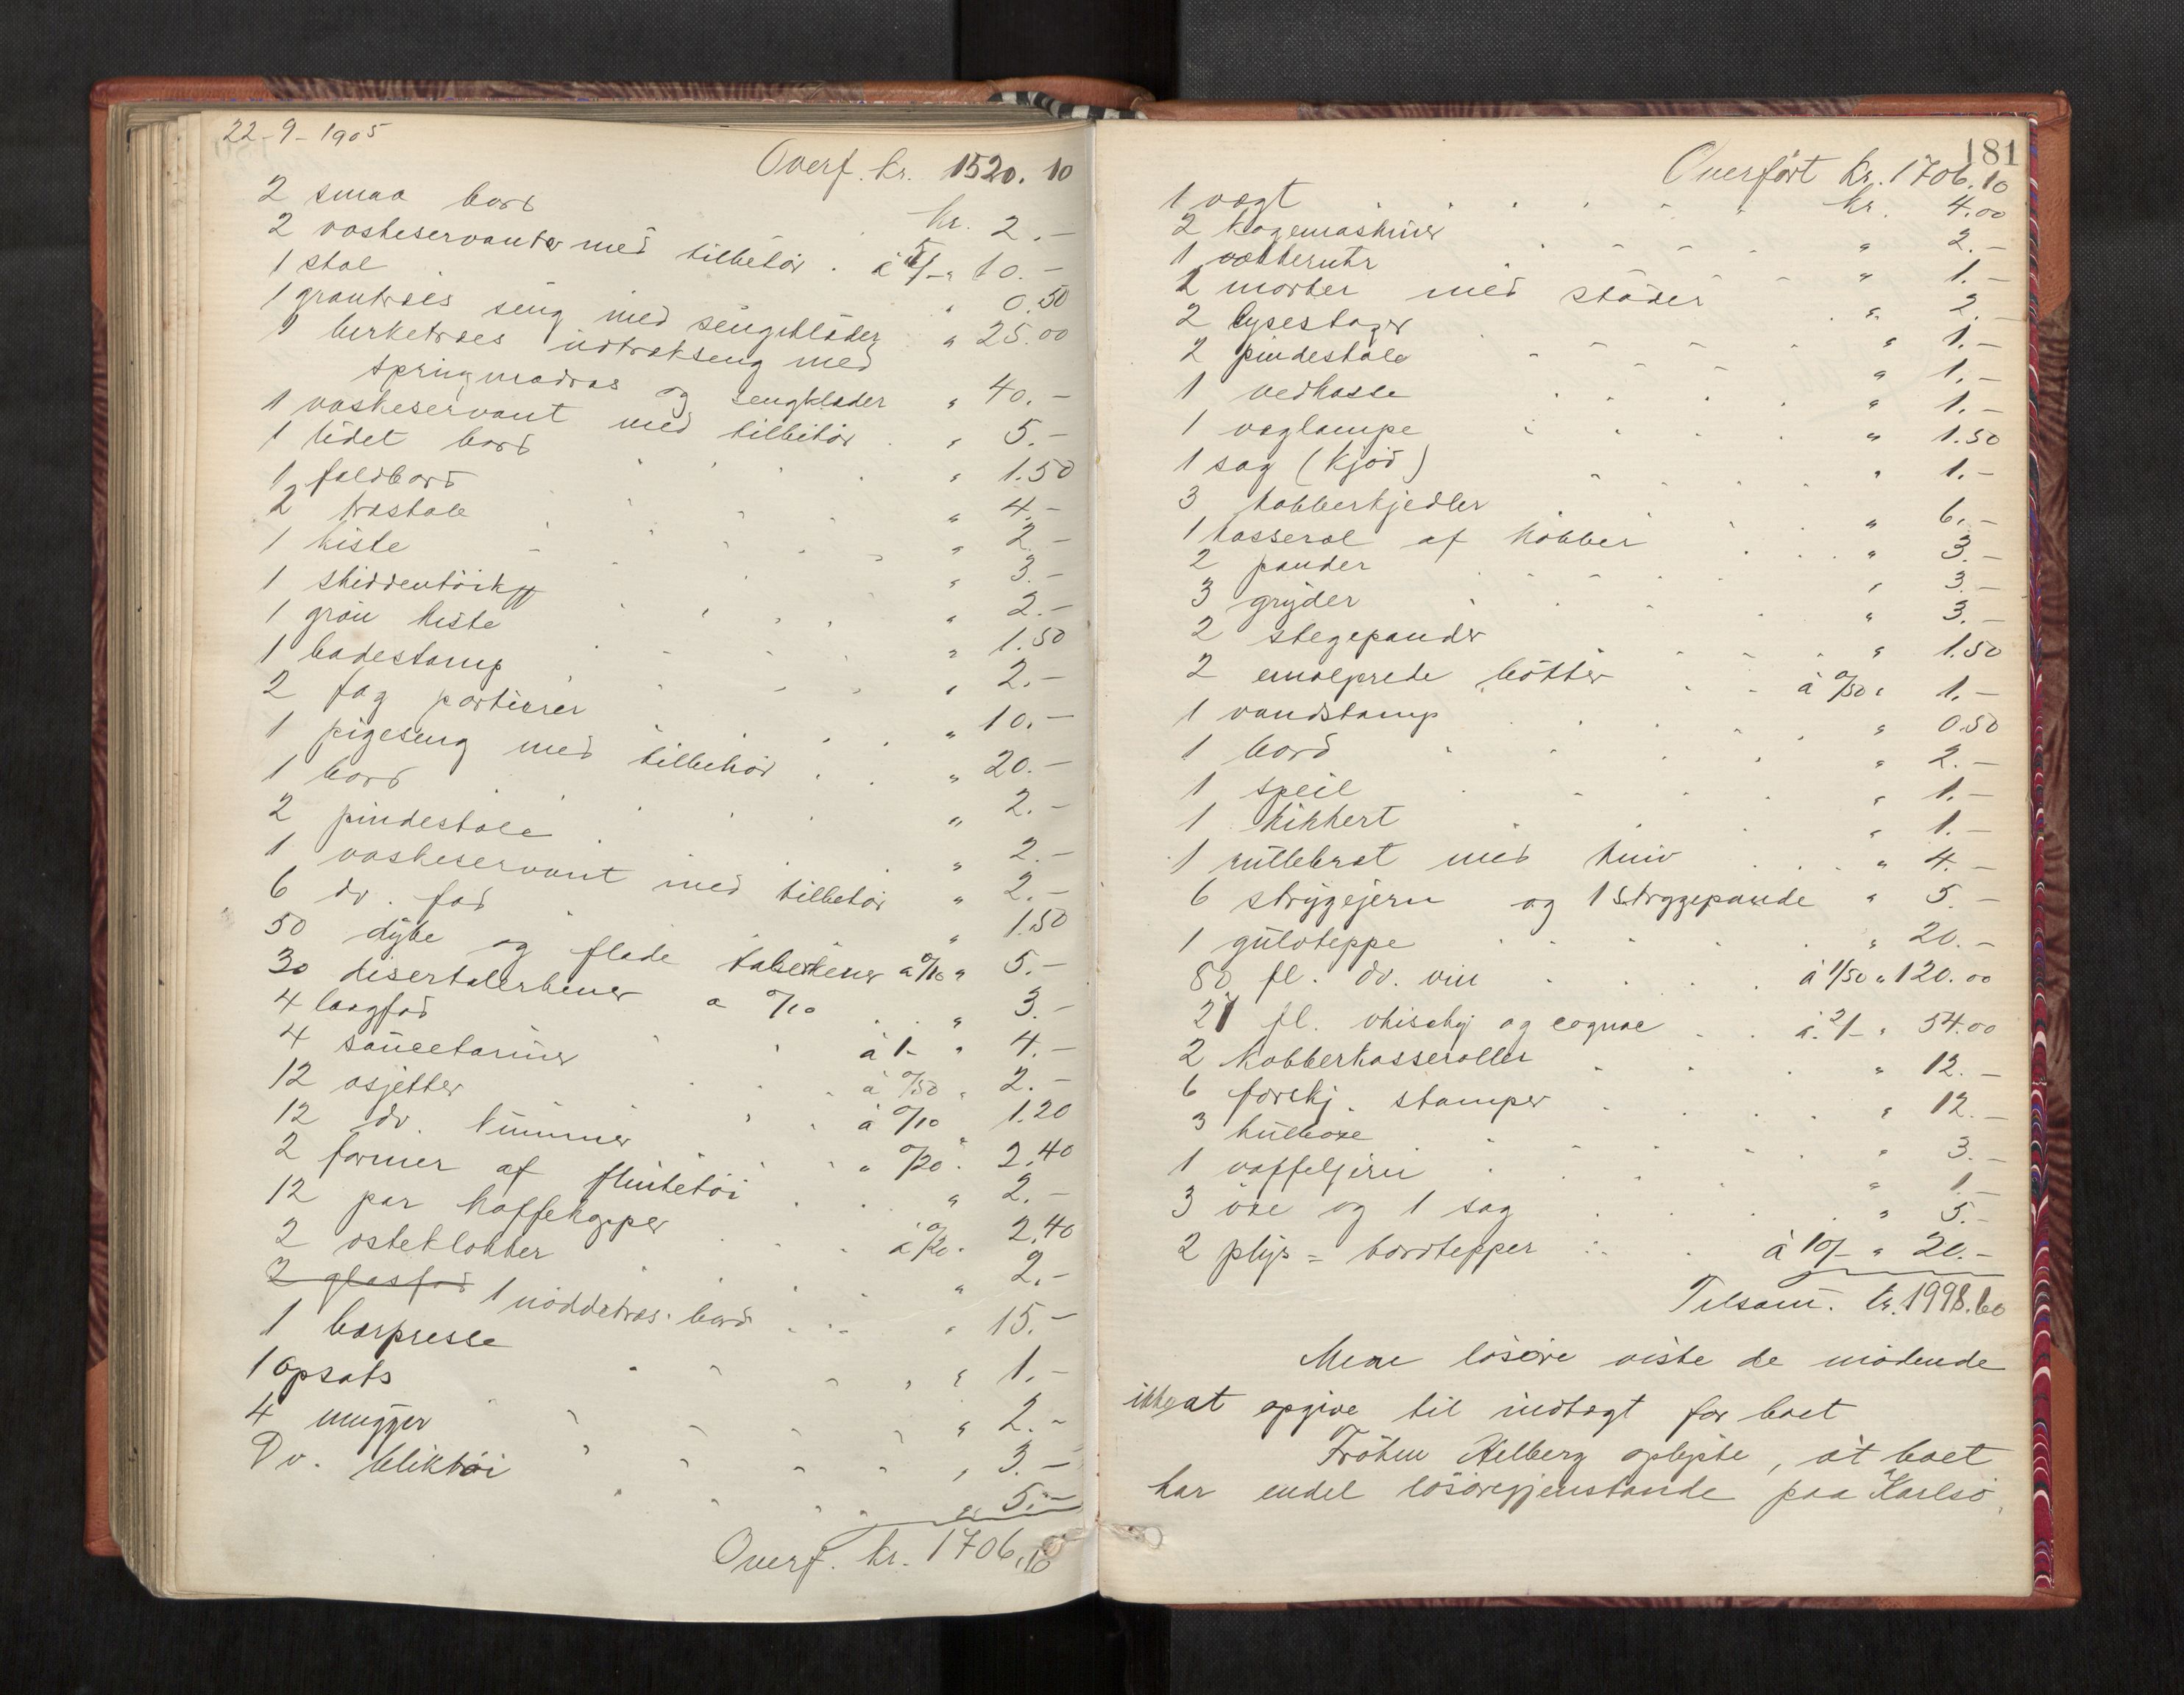 22-9-1905
Overf. kr. 1520.10
2 smaa bord . kr. 2.-
2 vaskeservanter med tilbehör . à 5/- " 10.-
1 stol " 0.50
1 grantræes seng med sengeklæder " 25.00
1 birketræes udtrækseng med
springmadras og sengklæder " 40.-
1 vaskeservant med tilbehör . " 5.-
1 lidet bord " 1.50
1 foldbord " 4.-
2 træstole " 2.-
1 kiste " 3.-
1 skiddentöik " 2.-
1 grön kiste " 1.50
1 badestamp " 2.-
2 fag portierer " 10.-
1 pigeseng med tilbehör . . " 20.-
1 bord " 2.-
2 pindestole " 2.-
1 vaskeservant med tilbehör " 2.-
6 dv. fad " 1.50
50 dybe og flade talerkener à 0/10 " 5.-
30 disertalerkener a 0/10 . . " 3.-
4 laagfad à 1- " 4.-
4 saucetariner à 0/50 " 2.-
12 asjetter à 0/10 1.20
12 dv. kummer " 0/20 " 2.40
2 former af flintetöi . . " 2.-
12 par kaffekopper à 0/20 " 2.40
2 osteklokker " 2.-
2 glasfad 1 nöddetræs. bord " 15.-
1 bærpresse " 1.-
1 opsats " 2.-
4 mugger " 3.-
Dv. bliktöi " 5.-
Overf. kr. 1706.10
181
Overfört kr. 1706.10
1 vægt kr. 4.00
2 kogemaskiner " 2.-
1 vækkerutr " 1.-
2 morter med stöder " 2.-
2 lysestager " 1.-
2 pindestole " 1.-
1 vedkasse " 1.-
1 væglampe " 1.50
1 sag (kjöd) " 1.-
3 kobberkjedler " 6.-
1 kasserol af kobber " 3.-
2 pander " 3.-
3 gryder " 3.-
2 stegepander " 1.50
2 emaljerede bötter à 0/50 " 1.-
1 vandstamp " 0.50
1 bord " 2.-
1 speil " 1.-
1 kikkert " 1.-
1 rullebræt med kniv " 4.-
6 strygejern og 1 strygepande " 5.-
1 gulvteppe " 20.-
80 fl. dv. vin à 1/50 " 120.00
27 fl. vhisky og cognac à 2/- " 54.00
2 kobberkasseroller " 12.-
6 forskj. stamper " 12.-
3 huløxe " 3.-
1 vaffeljern " 1.-
3 öxe og 1 sag " 5.-
2 plys = bordtepper à 10/- " 20.-
Tilsam. kr. 1998.60
Mere lösöre viste de mödende
ikke at opgive til indtægt for boet
Fröken Helberg oplyste, at boet
har endel lösöregjenstande paa Karlsö,